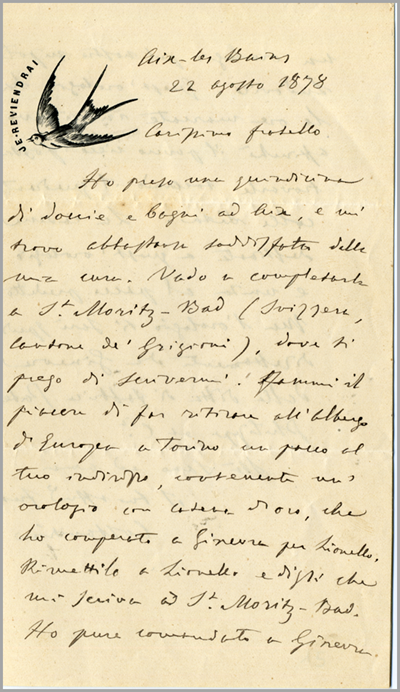 JE·REVIENDRAI
Aix-les Bains
22 agosto 1878
Carissimo fratello
Ho preso una quindicina
di doccie e bagni ad Aix, e mi
trovo abbastanza soddisfatto della
mia cura. Vado a completarla
a St. Moritz-Bad (Svizzera,
Cantone de' Grigioni), dove ti
prego di scrivermi. Fammi il
piacere di far ritirare all'albergo
di Europa a Torino un pacco al
tuo indirizzo, contenente un'
orologio con catena d'oro, che
ho comperato a Ginevra per Lionello.
Rimettilo a Lionello e digli che
mi scriva a St. Moritz-Bad.
Ho pure comandato a Ginevra